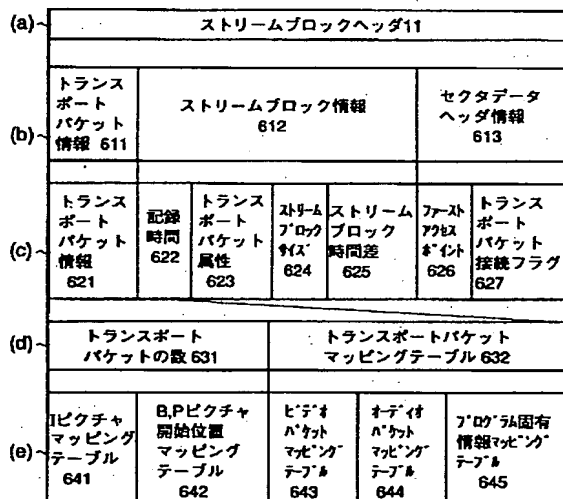 (a) ストリームブロックヘッダ11
(b)
トランス
ポート
パケット
情報 611
ストリームブロック情報
612
セクタデータ
ヘッダ情報
613
(c)
トランス
ポート
パケット
情報
621
記録
時間
622
トランス
ポート
パケット
属性
623
ストリーム
ブロック
サイズ
624
ストリーム
ブロック
時間差
625
ファースト
アクセス
ポイント
626
トランス
ポート
パケット
接続フラグ
627
(d)
トランスポート
パケットの数 631
トランスポートパケット
マッピングテーブル 632
(e)
Iピクチャ
マッピング
テーブル
641
B,Pピクチャ
開始位置
マッピング
テーブル
642
ビデオ
パケット
マッピング
テーブル
643
オーディオ
パケット
マッピング
テーブル
644
プログラム固有
情報マッピング
テーブル
645